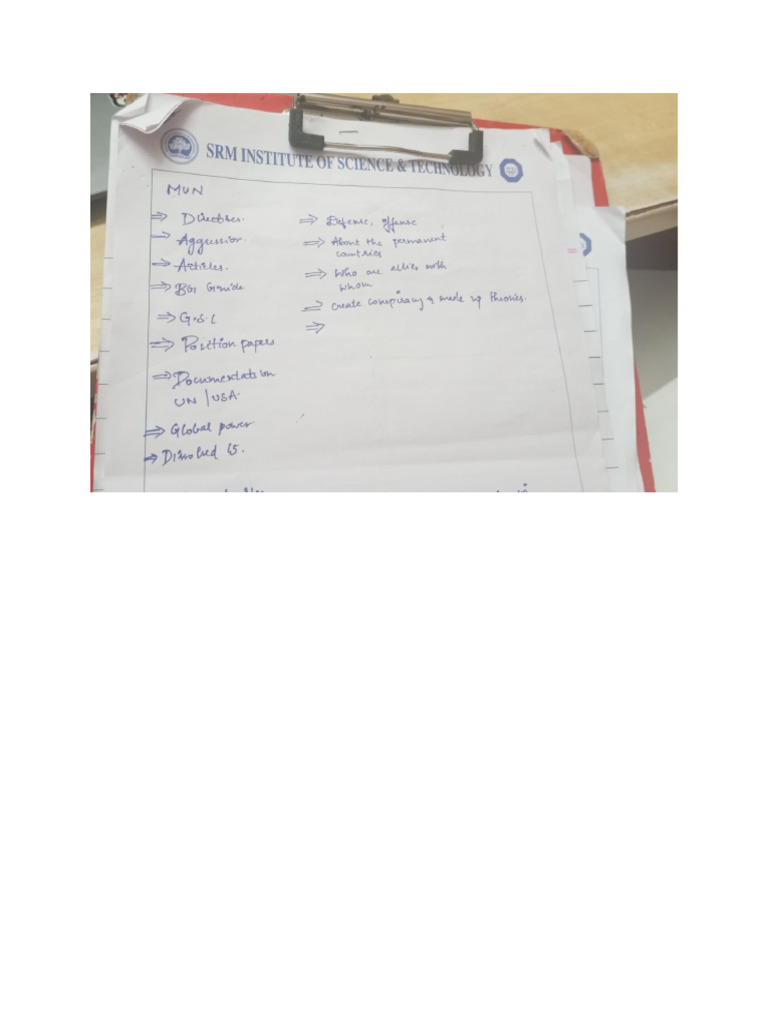 SRM INSTITUTE OF SCIENCE & TECHNOLOGY
MUN
⇒ Directives.
→ Aggression.
→ Articles.
⇒ BG Guide
⇒ G.S.L
⇒ Position papers
⇒ Documentation
UN / USA.
⇒ Global power
→ Dissolved
⇒ Defense, offense
⇒ About the permanent
countries
⇒ Who are allies with
whom
⇒ Create conspiracy & made up theories.
⇒